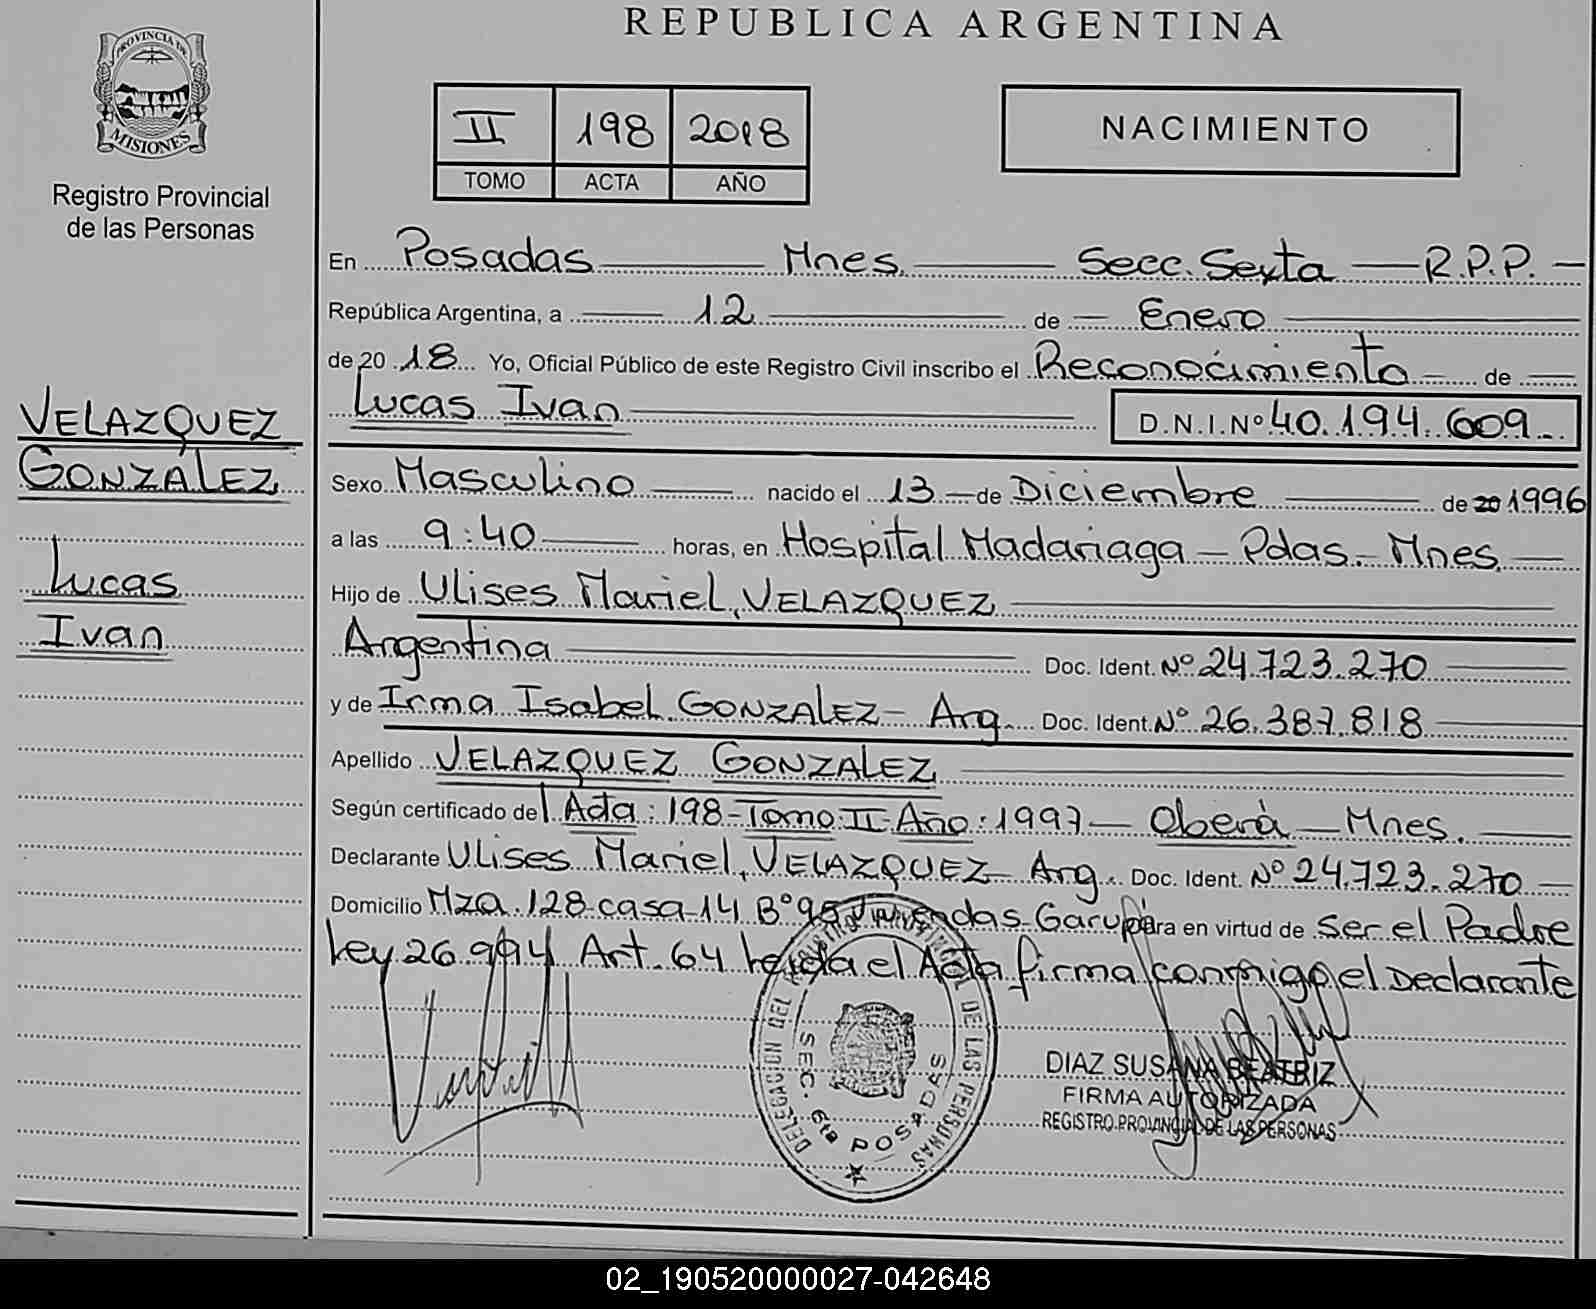 REPUBLICA ARGENTINA
PROVINCIA DE
MISIONES
Registro Provincial
de las Personas
II 198 2018
TOMO ACTA AÑO
NACIMIENTO
VELAZQUEZ
GONZALEZ
Lucas
Ivan
En Posadas Mnes. Secc. Sexta R.P.P.
República Argentina, a 12 de Enero
de 20 18 Yo, Oficial Público de este Registro Civil inscribo el Reconocimiento de
Lucas Ivan D.N.I.Nº 40.194.609
Sexo Masculino nacido el 13 de Diciembre de 20 1996
a las 9:40 horas, en Hospital Madariaga - Pdas. Mnes.
Hijo de Ulises Mariel, VELAZQUEZ
Argentina Doc. Ident. Nº 24.723.270
y de Irma Isabel GONZALEZ - Arg. Doc. Ident. Nº 26.387.818
Apellido VELAZQUEZ GONZALEZ
Según certificado de l Acta: 198 - Tomo: II - Año: 1997 - Oberá - Mnes.
Declarante Ulises Mariel, VELAZQUEZ Arg. Doc. Ident. Nº 24.723.270
Domicilio Mza. 128 casa 14 Bº 95 Viviendas Garupá para en virtud de ser el Padre
Ley 26.994 Art. 64 Leída el Acta firma conmigo el Declarante
DELEGACION DEL REGISTRO PROVINCIAL DE LAS PERSONAS
SEC. 6ta POSADAS
DIAZ SUSANA BEATRIZ
FIRMA AUTORIZADA
REGISTRO PROVINCIAL DE LAS PERSONAS
02_190520000027-042648